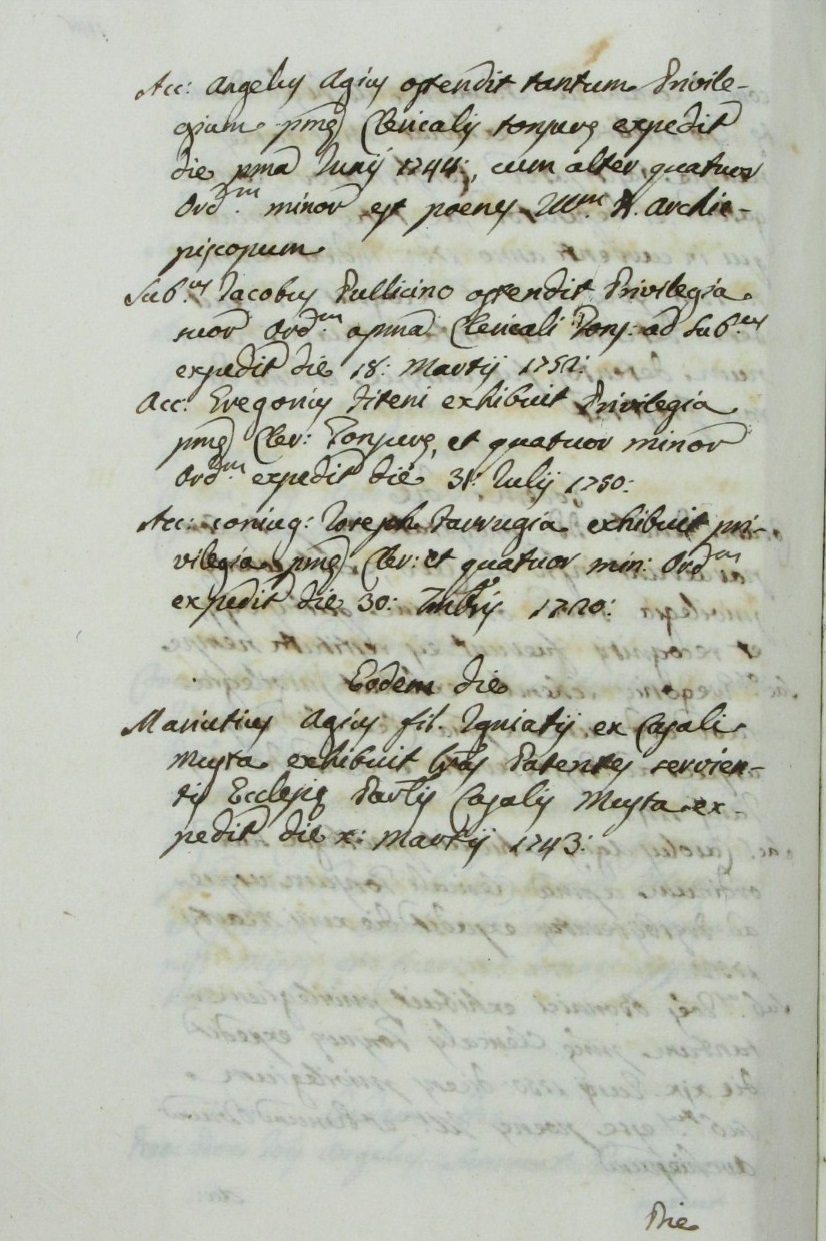 Acc: Angelus Agius ostendit tantum Privile-
gium pmę Clericalis tonsurę expedit
die pma Iunij 1744:, cum alter quatuor
Ord.m minor est poenes Illm. D. Archie-
piscopum
Sub.us Iacobus Pullicino ostendit Privilegia
suor Ord.m a pma Clericali Tons: ad Sub.um
expedit die 18: Martij 1752:
Acc: Gregorius Xiteni exhibuit Privilegia
pmę Cler: Tonsurę, et quatuor minor
Ord.m expedit die 31: Iulij 1750:
Acc: coniug: Ioseph Farrugia exhibuit pri-
vilegia pmę Cler: et quatuor min: Ord.m
expedit die 30: 1720:
Eodem die
Mauritius Agius fil. Ignatij ex Casali
Musta exhibuit Lras Patentes servien-
tis Ecclesię Parlis Casalis Musta ex-
pedit die x: Martij 1743:
Die